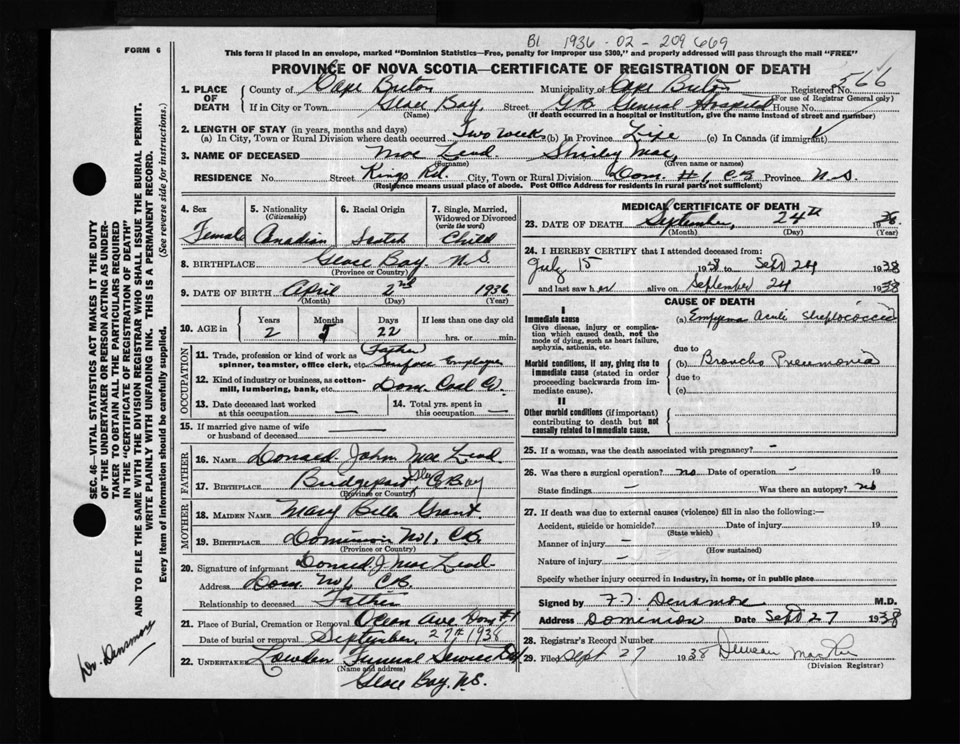 B1 1936-02-209669
FORM 6
This form if placed in an envelope, marked "Dominion Statistics—Free, penalty for improper use $300," and properly addressed will pass through the mail "FREE"
PROVINCE OF NOVA SCOTIA—CERTIFICATE OF REGISTRATION OF DEATH
1. PLACE OF DEATH County of Cape Breton Municipality of Cape Breton Registered No. 566
(For use of Registrar General only)
If in City or Town Glace Bay Street General Hospital House No.
(Name) (If death occurred in a hospital or institution, give the name instead of street and number)
2. LENGTH OF STAY (in years, months and days)
(a) In City, Town or Rural Division where death occurred Two weeks (b) In Province Life (c) In Canada (if immigrant)
3. NAME OF DECEASED Mac Leod Shirley Mae
(Surname) (Given name or names)
RESIDENCE No. Street Kings Rd. City, Town or Rural Division Dom. #1, CB Province N.S.
(Residence means usual place of abode. Post Office Address for residents in rural parts not sufficient)
4. Sex Female
5. Nationality (Citizenship) Canadian
6. Racial Origin Scotch
7. Single, Married, Widowed or Divorced (write the word) Child
8. BIRTHPLACE Glace Bay N.S.
(Province or Country)
9. DATE OF BIRTH April 2nd 1936
(Month) (Day) (Year)
10. AGE in Years 2 Months 5 Days 22 If less than one day old hrs. or min.
OCCUPATION
11. Trade, profession or kind of work as spinner, teamster, office clerk, etc. Father Surface Employee
12. Kind of industry or business, as cotton-mill, lumbering, bank, etc. Dom. Coal Co.
13. Date deceased last worked at this occupation —
14. Total yrs. spent in this occupation —
15. If married give name of wife or husband of deceased —
FATHER
16. NAME Donald John Mac Leod
17. BIRTHPLACE Bridgeport Glace Bay
(Province or Country)
MOTHER
18. MAIDEN NAME Mary Belle Grant
19. BIRTHPLACE Dominion No 1, CB.
(Province or Country)
20. Signature of informant Donald J Mac Leod
Address Dom No 1 CB
Relationship to deceased Father
21. Place of Burial, Cremation or Removal Ocean Ave Dom #1
Date of burial or removal September 27th 1938
22. UNDERTAKER Lowden Funeral Service
(Name and address)
Glace Bay, N.S.
MEDICAL CERTIFICATE OF DEATH
23. DATE OF DEATH September 24th 1938
(Month) (Day) (Year)
24. I HEREBY CERTIFY that I attended deceased from:
July 15 1938 to Sept 24 1938
and last saw her alive on September 24 1938
CAUSE OF DEATH
I
Immediate cause
Give disease, injury or complication which caused death, not the mode of dying, such as heart failure, asphyxia, asthenia, etc.
(a) Empyema Acute Streptococcic
due to
Morbid conditions, if any, giving rise to immediate cause (stated in order proceeding backwards from immediate cause).
(b) Broncho Pneumonia
due to
(c)
II
Other morbid conditions (if important) contributing to death but not causally related to immediate cause.
25. If a woman, was the death associated with pregnancy? -
26. Was there a surgical operation? no Date of operation - 19
State findings — Was there an autopsy? no
27. If death was due to external causes (violence) fill in also the following:
Accident, suicide or homicide? Date of injury 19
(State which)
Manner of injury —
(How sustained)
Nature of injury —
Specify whether injury occurred in industry, in home, or in public place
Signed by Densmore M.D.
Address Dominion Date Sept 27 1938
28. Registrar's Record Number
29. Filed Sept 27 1938 Duncan
(Division Registrar)
SEC. 46—VITAL STATISTICS ACT MAKES IT THE DUTY
OF THE UNDERTAKER OR PERSON ACTING AS UNDER-
TAKER TO OBTAIN ALL THE PARTICULARS REQUIRED
IN THE "CERTIFICATE OF REGISTRATION OF DEATH"
AND TO FILE THE SAME WITH THE DIVISION REGISTRAR WHO SHALL ISSUE THE BURIAL PERMIT.
WRITE PLAINLY WITH UNFADING INK. THIS IS A PERMANENT RECORD.
Every item of information should be carefully supplied. (See reverse side for instructions.)
Dr. Densmore